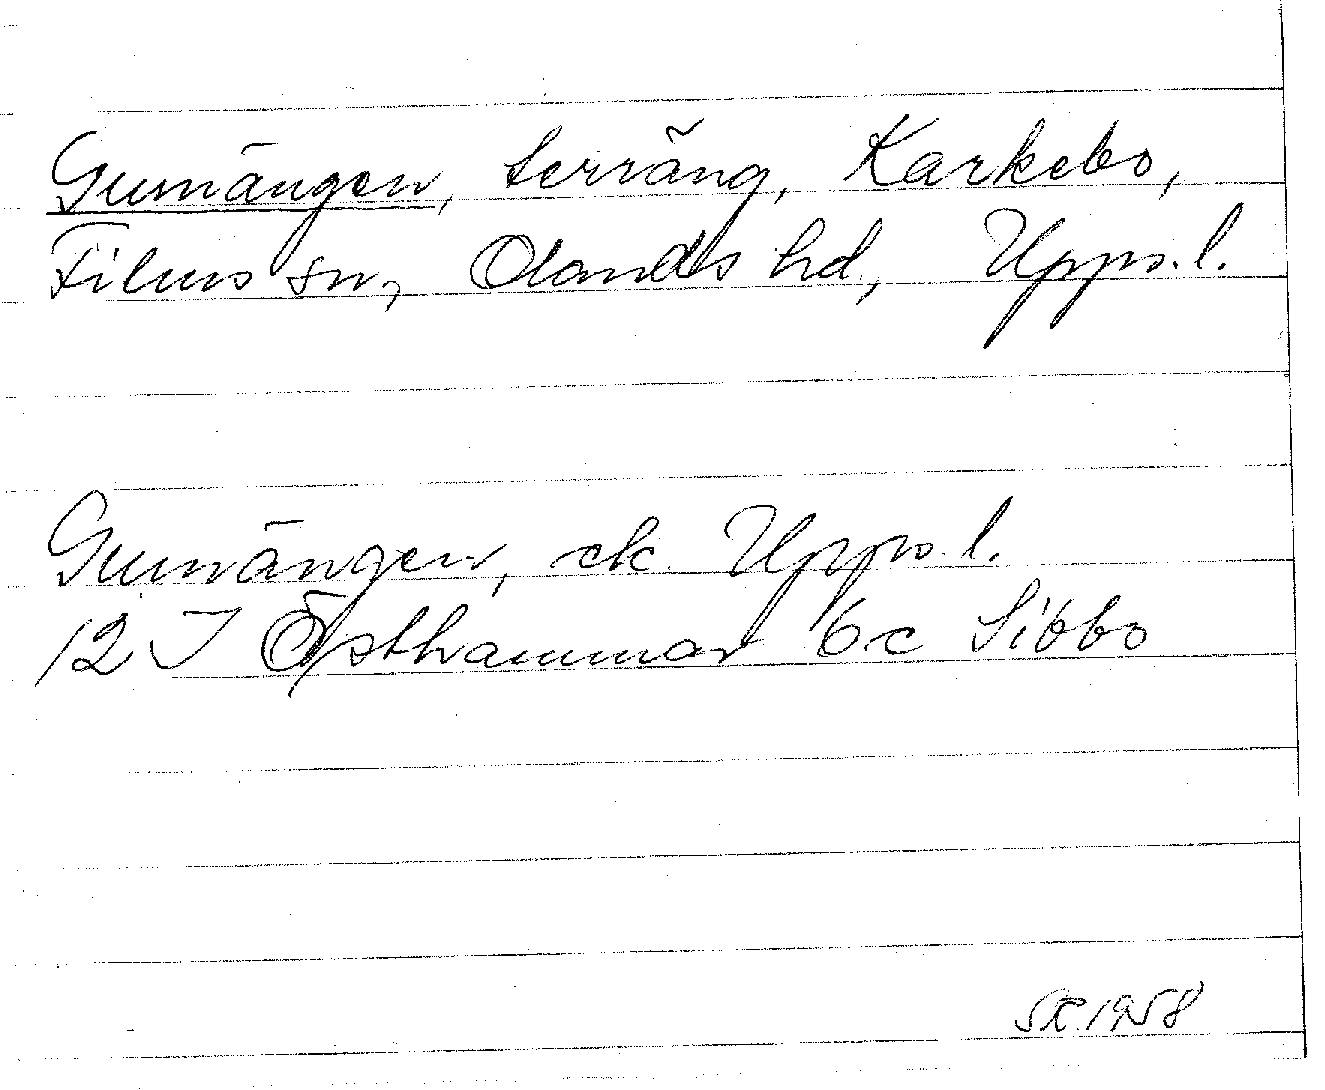 Gumängen, terräng, Karkebo,
Films sn, Olands hd, Upps. l.
Gumängen, ek. Upps. l.
12 I Östhammar 6c Sibbo
SK 1958